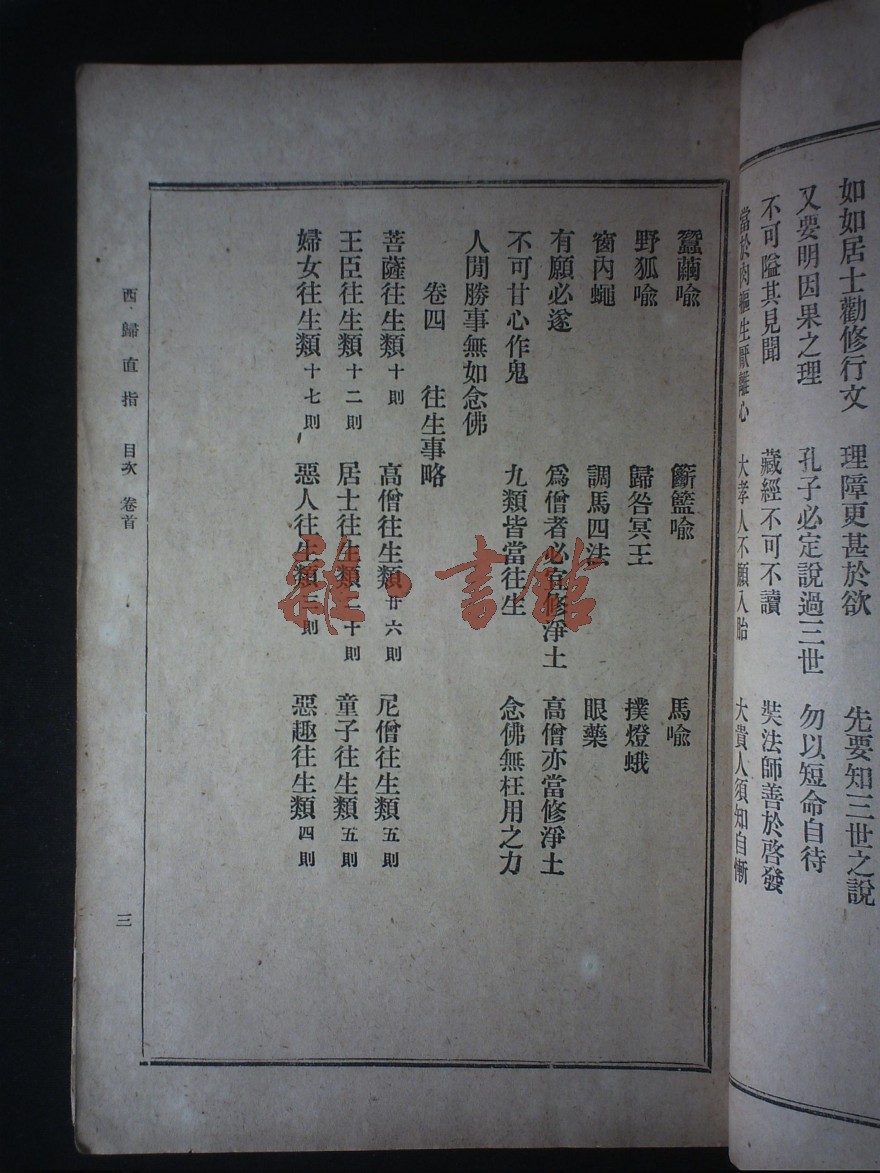 如如居士勸修行文　理障更甚於欲　先要知三世之說
又要明因果之理　孔子必定說過三世　勿以短命自待
不可隘其見聞　藏經不可不讀　奘法師善於啓發
當於肉軀生厭離心　大孝人不願入胎　大貴人須知自慚
蠶繭喻　籪籃喻　馬喻
野狐喻　歸咎冥王　撲燈蛾
窗內蠅　調馬四法　眼藥
有願必遂　爲僧者必宜修淨土　高僧亦當修淨土
不可甘心作鬼　九類皆當往生　念佛無枉用之力
人閒勝事無如念佛
卷四　往生事略
菩薩往生類十則　高僧往生類廿六則　尼僧往生類五則
王臣往生類十二則　居士往生類二十則　童子往生類五則
婦女往生類十七則　惡人往生類則　惡趣往生類四則
西歸直指　目次　卷首　三
雜·書館